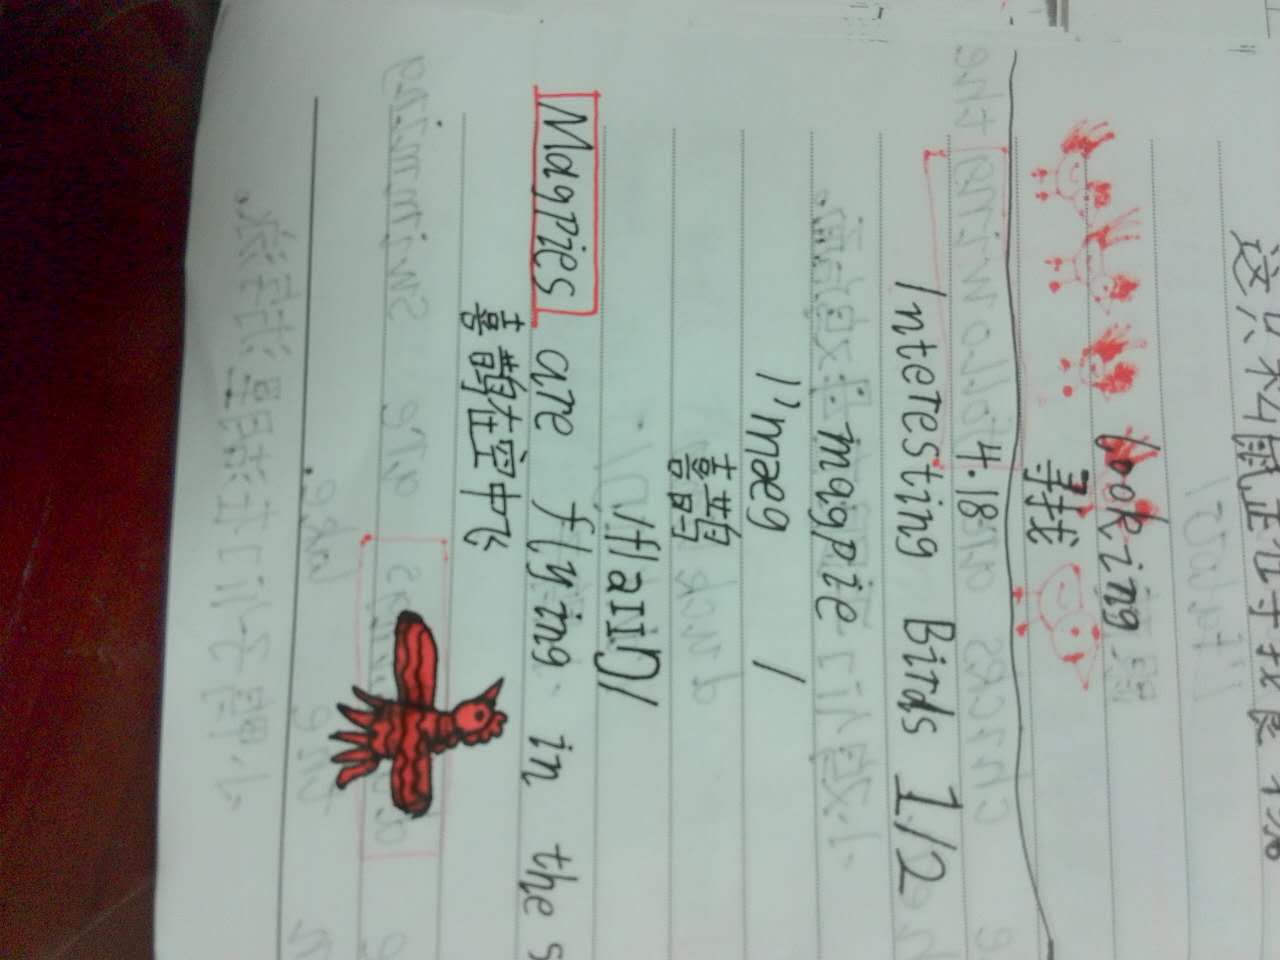 这只松鼠正在寻找食
looking
寻找
4.18
Interesting Birds 1/2
magpie
/'mæg /
喜鹊
/'flaɪɪŋ/
Magpies are flying in the s
喜鹊在空中飞